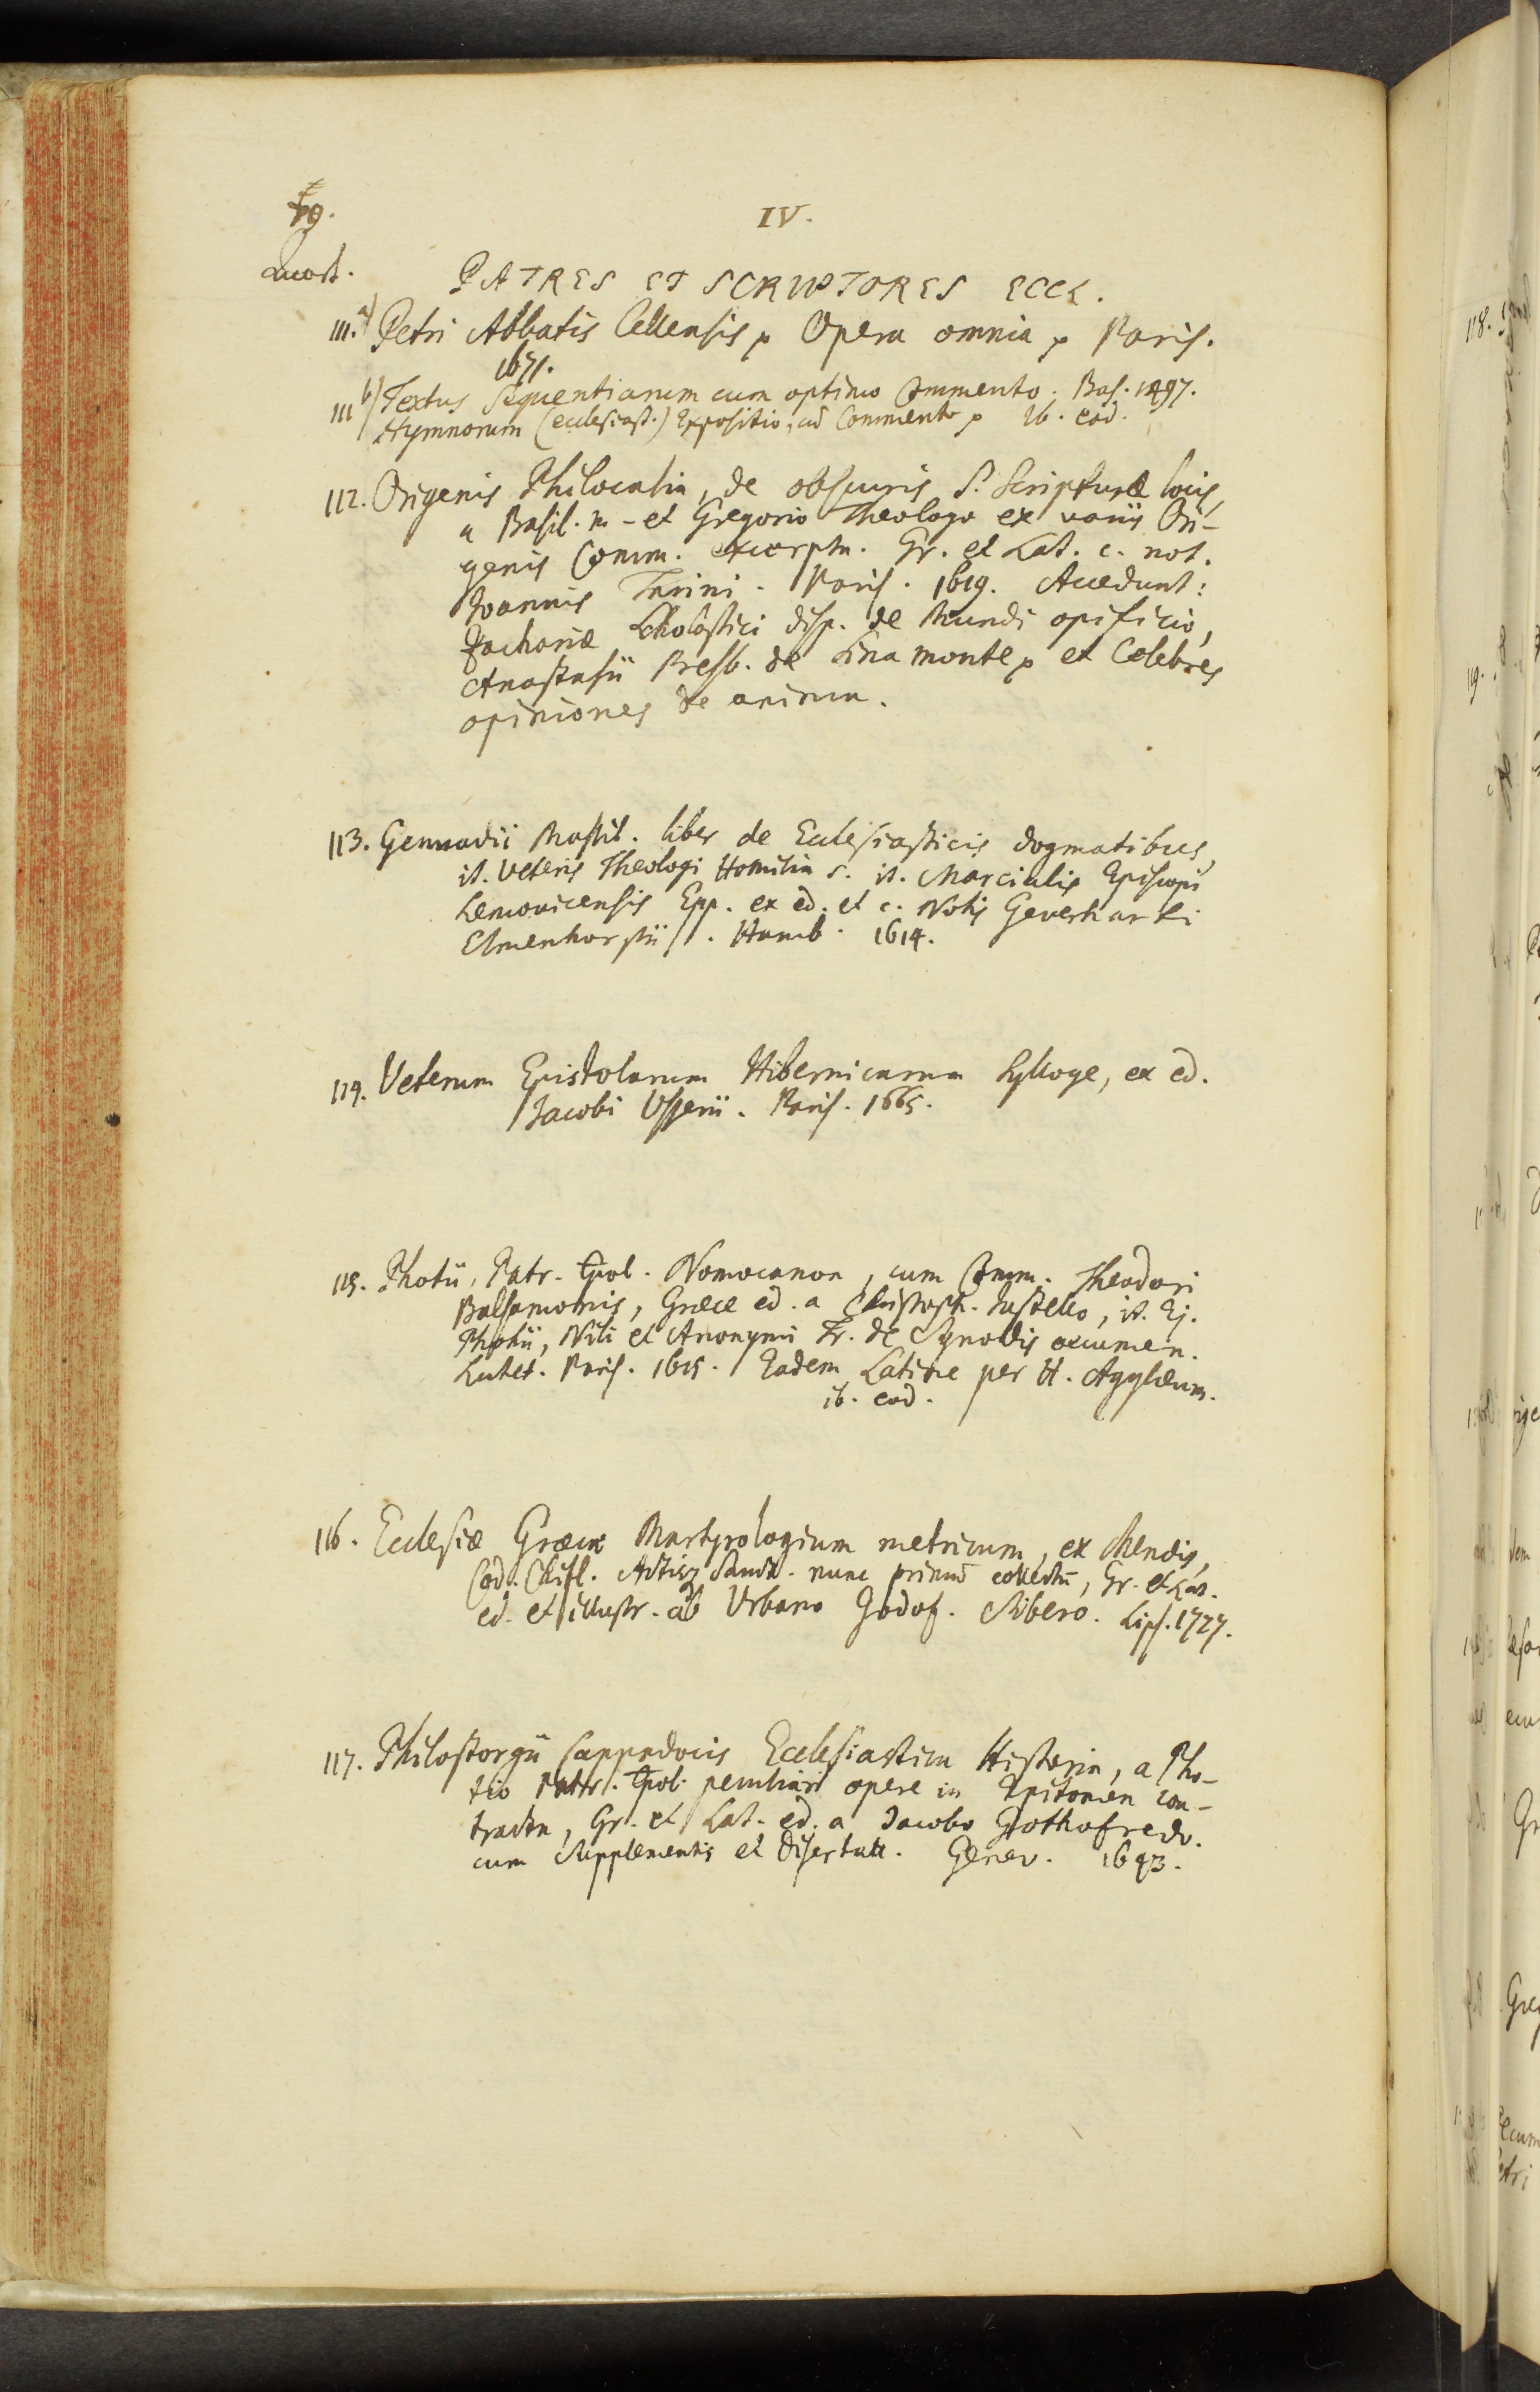 IV.
Quart.
PATRES ET SCRIPTORES ECCL.
111.a) Petri Abbatis Cellensis p Opera omnia p Paris.
1671.
111 b) Textus Sequentiarum cum optimo Commento. Bas. 1497.
Hymnorum (ecclesiast.) Expositio, cū Commento p Ib. eod.
112. Origenis Philocalia, de obscuris S. Scripturæ locis,
a Basil. m - et Gregorio Theologo ex variis Ori-
genis Comm. excerpta. Gr. et Lat. c. not.
Joannis Tarini. Paris. 1619. Accedunt:
Zachariæ Scholastici disp. de Mundi opificio,
Anastasii Presb. de Sina monte p et Celebres
opiniones de anima.
113. Gennadii Massil. liber de Ecclesiasticis dogmatibus,
it. Veteris Theologi Homilia s. it. Marcialis Episcopi
Lemovicensis Epp. ex ed. et c. Notis Geverharti
Elmenhorstii. Hamb. 1614.
114. Veterum Epistolarum Hibernicarum Sylloge, ex ed.
Jacobi Usserii. Paris. 1665.
115. Photii, Patr. Cpol. Nomocanon, cum Comm. Theodori
Balsamonis, Græce ed. a Christoph. Justello, it. Ej.
Photii, Nili et Anonymi Tr. de Synodis oecumen.
Lutet. Paris. 1615. Eadem Latine per H. Agylæum.
ib. eod.
116. Ecclesiæ Græcæ Martyrologium metricum, ex Menæis,
Cod. Chifl. Actisq Sanct. nunc primū collectū, Gr. et Lat.
ed. et illustr. ab Urbano Godof. Sibero. Lips. 1727.
117. Philostorgii Cappadocis Ecclesiastica Historia, a Pho-
tio Patr. Cpol. peculiari opere in Epitomen con-
tracta, Gr. et Lat. ed. a Jacobo Gothofredo.
cum Supplementis et Disertatt. Genev. 1643.